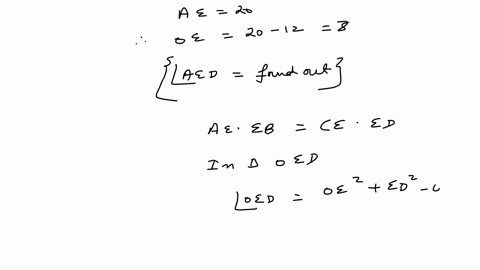 AE = 20
∴ OE = 20 - 12 = 8
{∠AED = found out}
AE · EB = CE · ED
In Δ OED
∠OED = OE² + ED² -